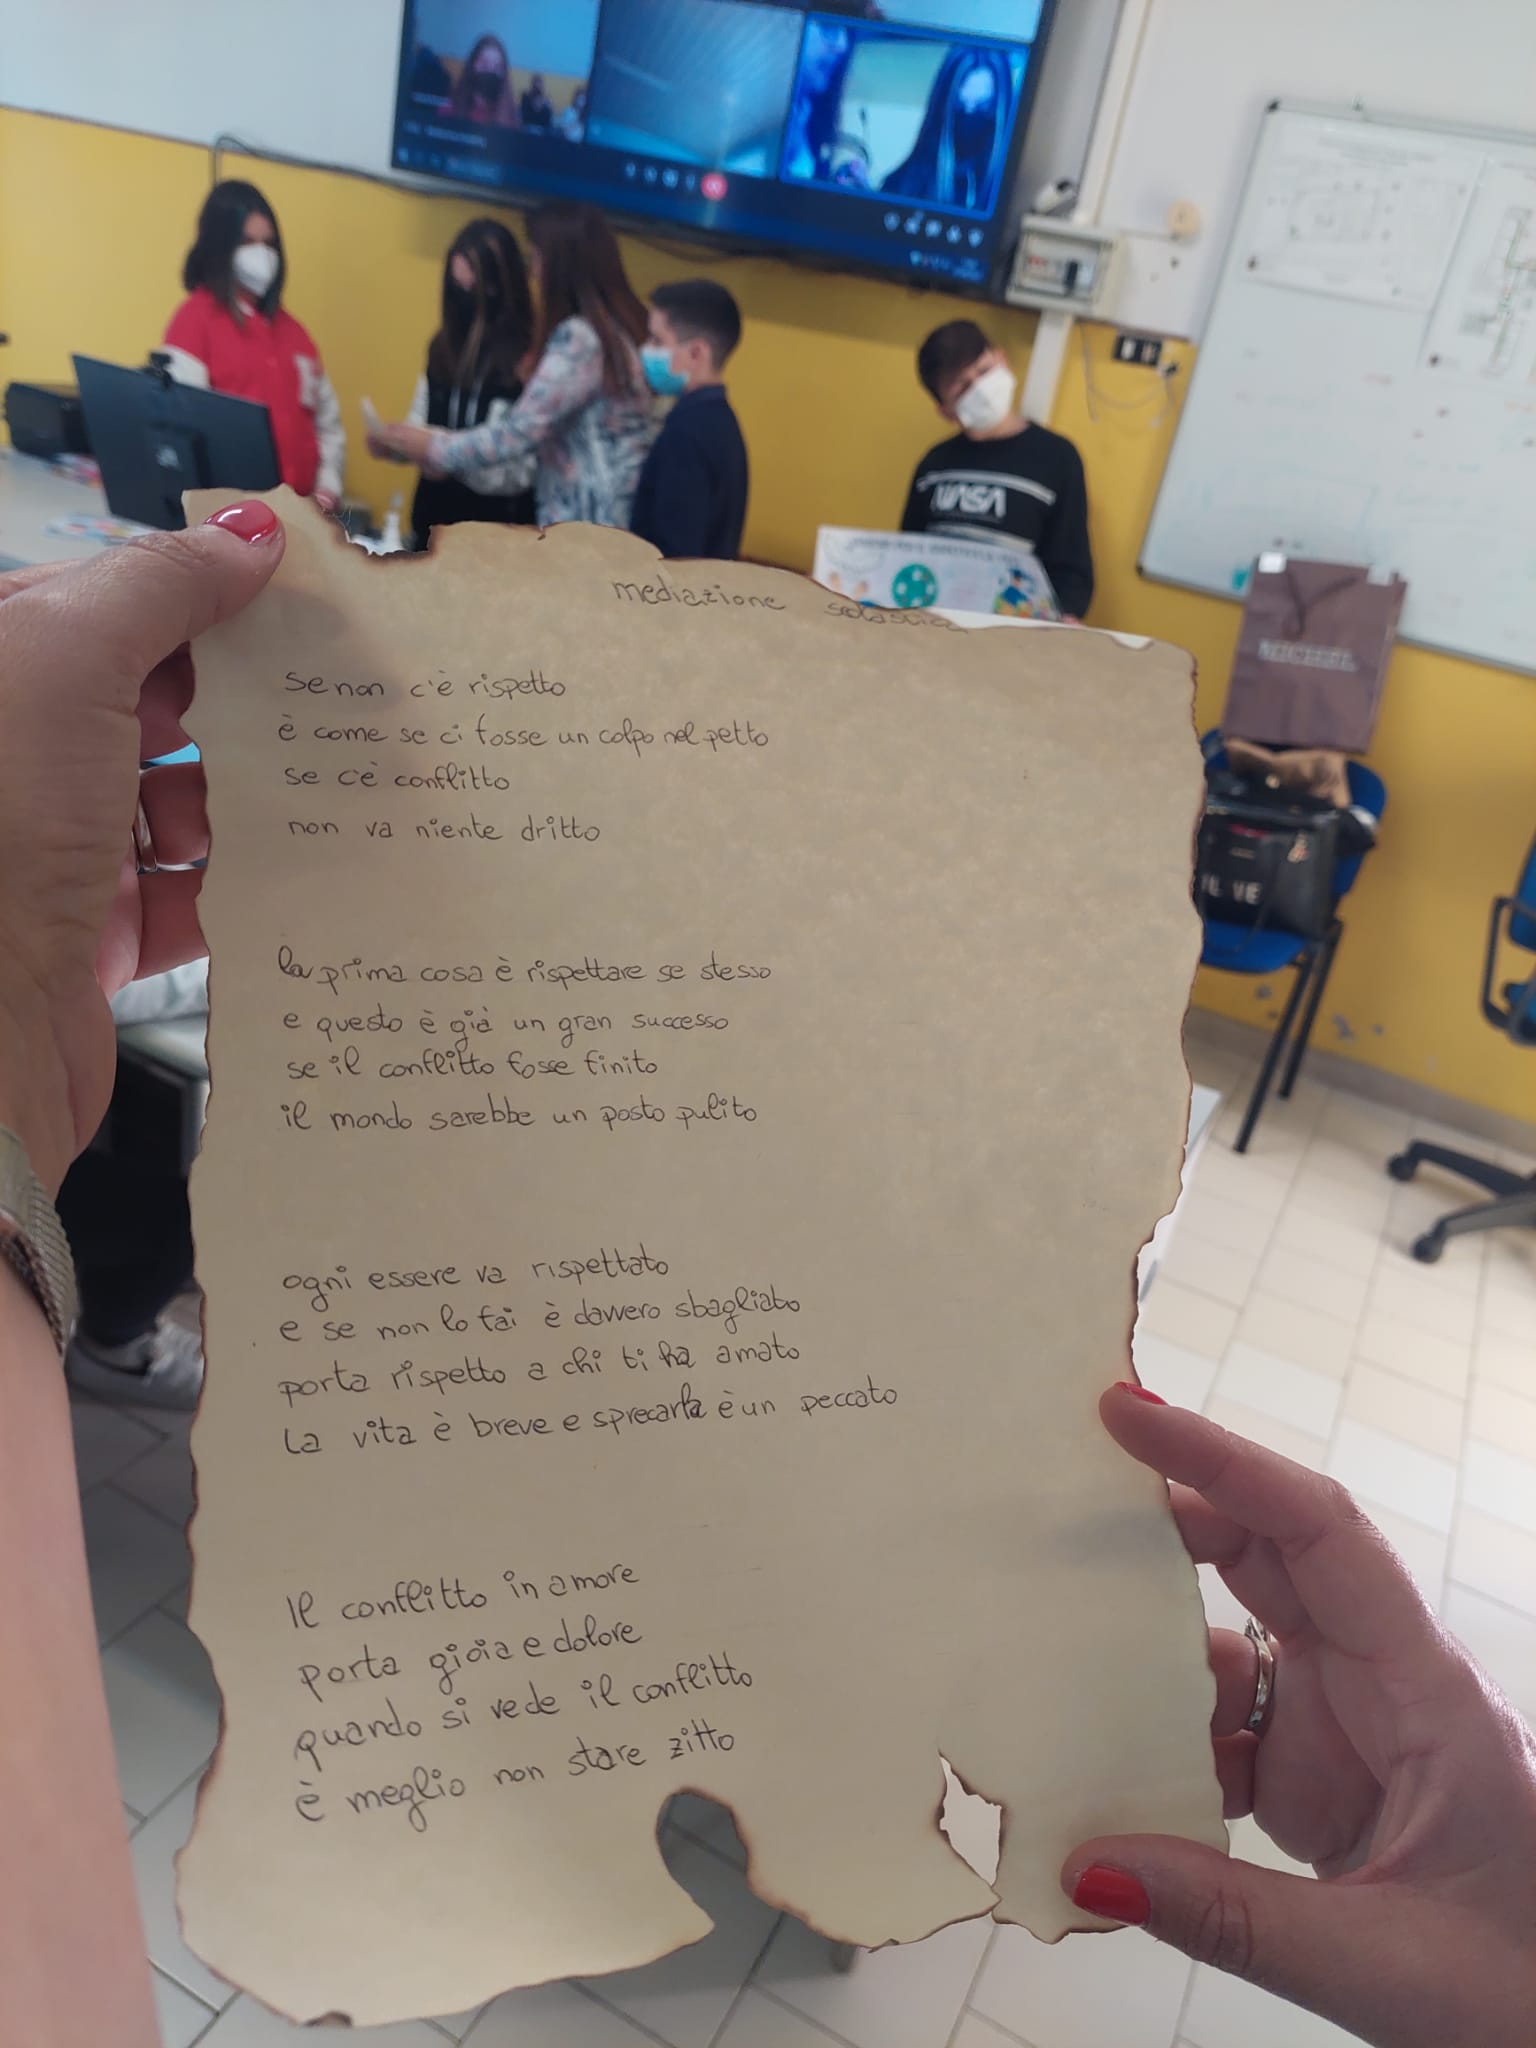 NASA
MICHEL
IL VE
mediazione scolastica
se non c'è rispetto
è come se ci fosse un colpo nel petto
se c'è conflitto
non va niente dritto
la prima cosa è rispettare se stesso
e questo è già un gran successo
se il conflitto fosse finito
il mondo sarebbe un posto pulito
ogni essere va rispettato
e se non lo fai è davvero sbagliato
porta rispetto a chi ti ha amato
La vita è breve e sprecarla è un peccato
Il conflitto in amore
porta gioia e dolore
quando si vede il conflitto
è meglio non stare zitto